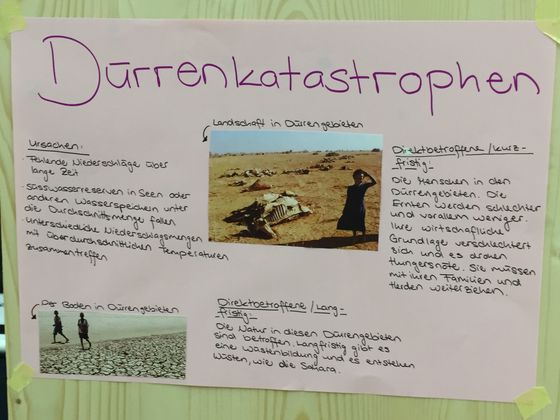 Dürrenkatastrophen
Landschaft in Dürrengebieten
Ursachen:
- Fehlende Niederschläge über
lange Zeit
- Süsswasserreserven in Seen oder
anderen Wasserspeichern unter
die Durchschnittsmenge fallen
- Unterschiedliche Niederschlagsmengen
mit überdurchschnittlichen Temperaturen
zusammentreffen
Direktbetroffene / kurz-
fristig:
Die Menschen in den
Dürrengebieten. Die
Ernten werden schlechter
und vorallem weniger.
Ihre wirtschaftliche
Grundlage verschlechtert
sich und es drohen
Hungersnöte. Sie müssen
mit ihren Familien und
Herden weiterziehen.
Der Boden in Dürrengebieten
Direktbetroffene / Lang-
fristig:
Die Natur in diesen Dürrengebieten
sind betroffen. Langfristig gibt es
eine Wüstenbildung und es entstehen
Wüsten, wie die Sahara.